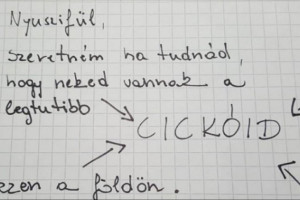 Nyuszifül,
szeretném ha tudnád,
hogy neked vannak a
legtutibb
CICKÓID
ezen a földön.